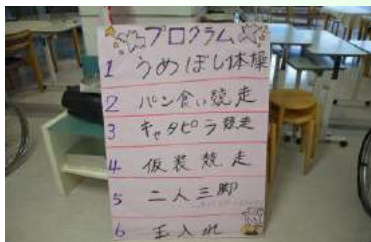 プログラム
1 うめぼし体操
2 パン食い競走
3 キャタピラ競走
4 仮装競走
5 二人三脚
6 玉入れ